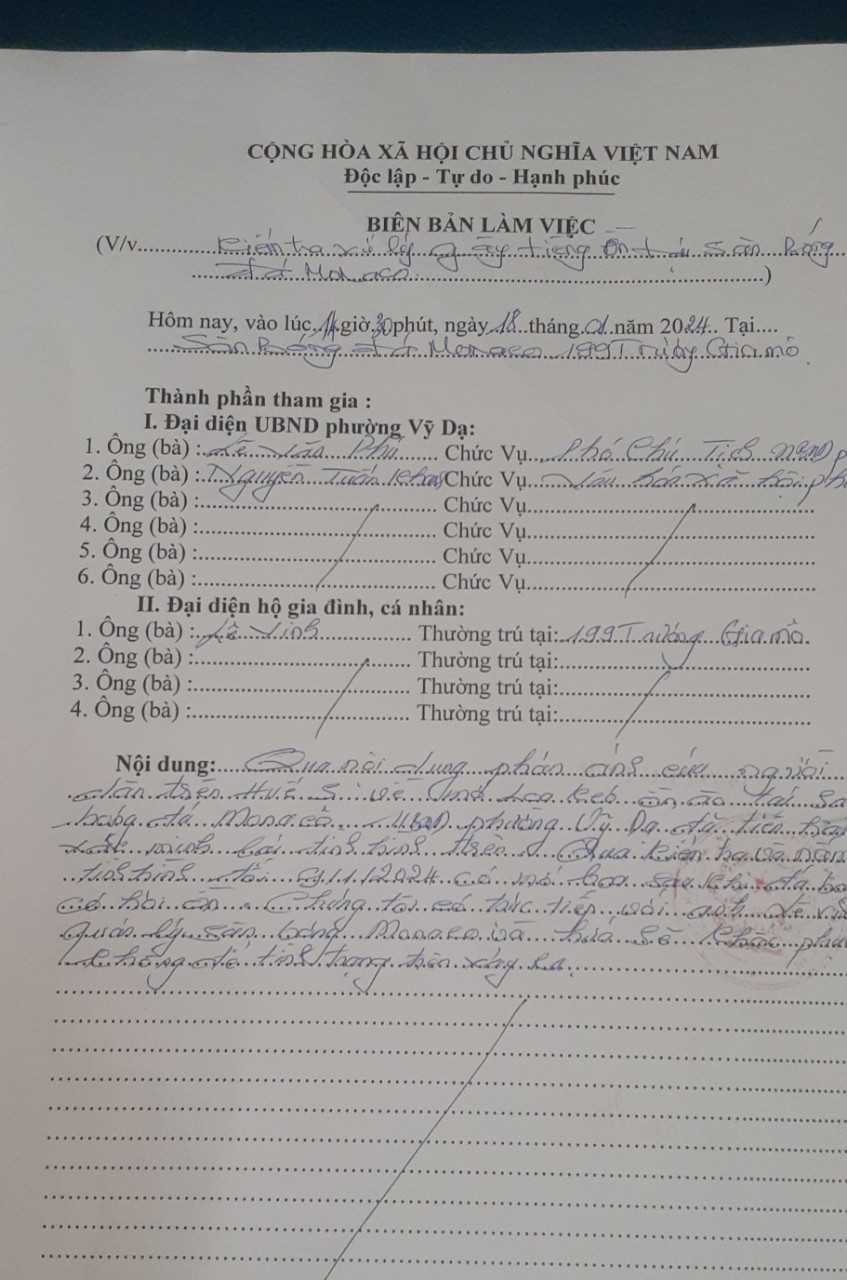 CỘNG HÒA XÃ HỘI CHỦ NGHĨA VIỆT NAM
Độc lập - Tự do - Hạnh phúc
BIÊN BẢN LÀM VIỆC
(V/v Kiểm tra xử lý gây tiếng ồn tại Sân bóng
đá Monaco )
Hôm nay, vào lúc 14 giờ 30 phút, ngày 18 tháng 01 năm 2024. Tại
Sân bóng đá Monaco 199 Trường Gia mô
Thành phần tham gia :
I. Đại diện UBND phường Vỹ Dạ:
1. Ông (bà) : Lê Văn Phú Chức Vụ Phó Chủ Tịch UBND p
2. Ông (bà) : Nguyễn Tuấn Chức Vụ Văn hóa xã hội ph
3. Ông (bà) : Chức Vụ
4. Ông (bà) : Chức Vụ
5. Ông (bà) : Chức Vụ
6. Ông (bà) : Chức Vụ
II. Đại diện hộ gia đình, cá nhân:
1. Ông (bà) : Lê Vinh Thường trú tại: 199 Trường Gia mô
2. Ông (bà) : Thường trú tại:
3. Ông (bà) : Thường trú tại:
4. Ông (bà) : Thường trú tại:
Nội dung: Qua nội dung phản ánh của người
dân trên Huế S về mở loa kẹo ồn ào tại sân
bóng đá Monaco. UBND phường Vỹ Dạ đã tiến hà
xác minh lại tình hình trên. Qua kiểm tra và nắm
tình hình tối 9/1/2024 có mở loa sau khi đá bó
có hơi ồn. Chúng tôi có trực tiếp với anh Lê Vi
quản lý sân bóng Monaco và hứa sẽ khắc phụ
không để tình trạng trên xảy ra.